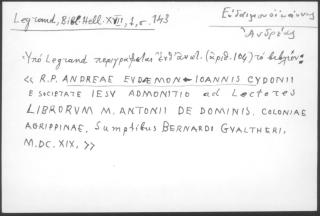 Legrand, Bibl. Hell. XVII, 1, σ. 143
Εὐδαιμονοϊωάννης
Ἀνδρέας
Ὑπὸ Legrand περιγράφεται ἐνθ' ἀνωτ. (ἀριθ. 104) τὸ βιβλίον:
« R.P. ANDREAE EVDÆMON-IOANNIS CYDONII
E SOCIETATE IESV ADMONITIO ad Lectores
LIBRORVM M. ANTONII DE DOMINIS. COLONIAE
AGRIPPINAE, Sumptibus BERNARDI GVALTHERI,
M.DC.XIX, »